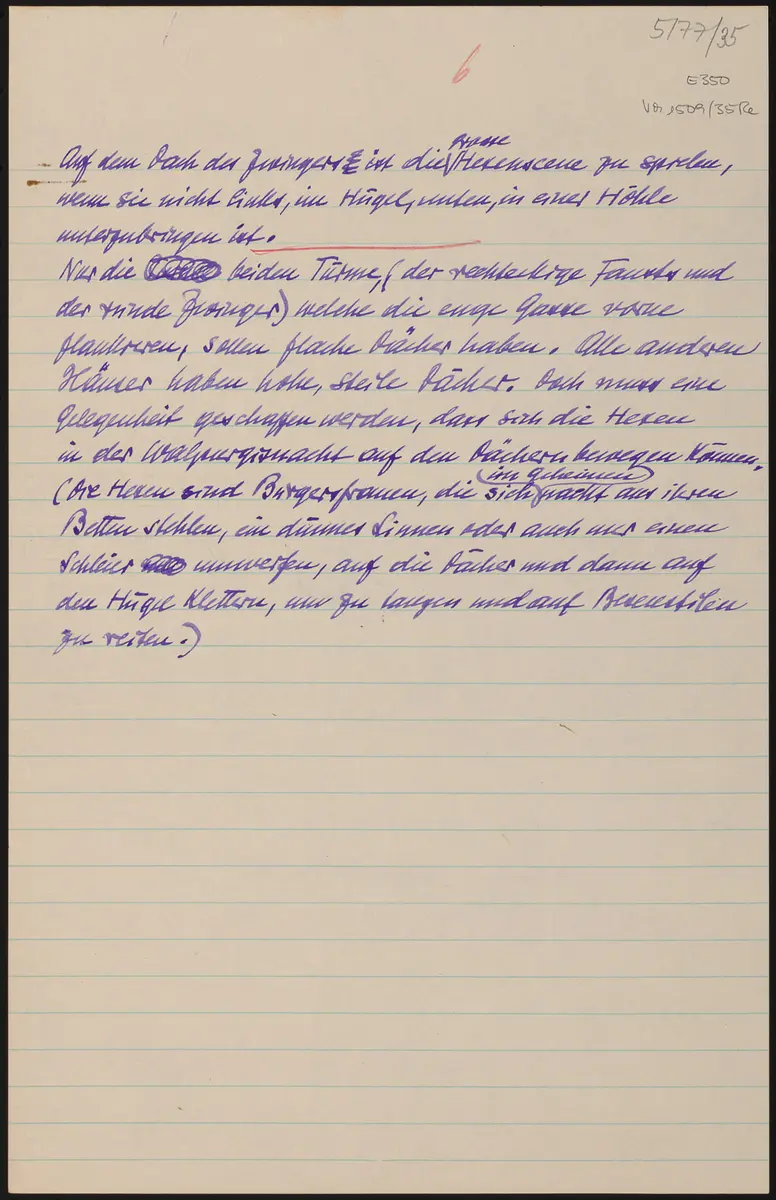 5/77/35
6
E350
VM 1509/35Re
grosse
Auf dem Dach des Zwingers ist die Hexenscene zu spielen,
wenn sie nicht links, im Hügel, unten, in einer Höhle
unterzubringen ist.
Nur die beiden Türme, (der rechteckige Fausts und
der runde Zwinger) welche die enge Gasse vorne
flankieren, sollen flache Dächer haben. Alle anderen
Häuser haben hohe, steile Dächer. Doch muss eine
Gelegenheit geschaffen werden, dass sich die Hexen
in der Walpurgisnacht auf den Dächern bewegen können.
im geheimen
(Die Hexen sind Bürgersfrauen, die sich nachts aus ihren
Betten stehlen, ein dünnes Linnen oder auch nur einen
Schleier umwerfen, auf die Dächer und dann auf
den Hügel klettern, um zu tanzen und auf Besenstilen
zu reiten.)